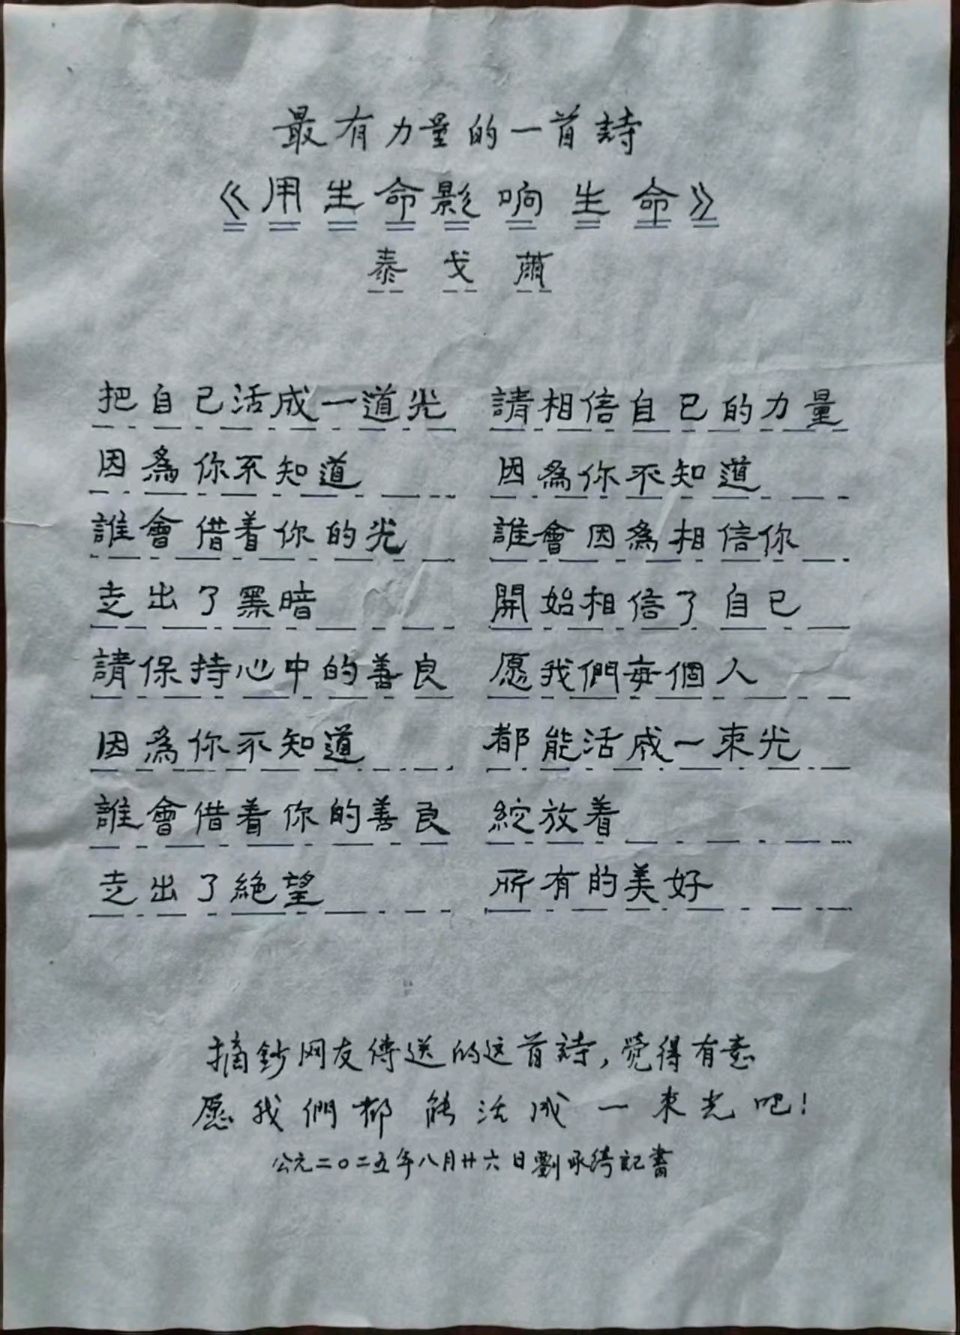 最有力量的一首詩
《用生命影响生命》
泰戈爾
把自己活成一道光
因為你不知道
誰會借着你的光
走出了黑暗
請保持心中的善良
因為你不知道
誰會借着你的善良
走出了絕望
請相信自己的力量
因為你不知道
誰會因為相信你
開始相信了自己
愿我們每個人
都能活成一束光
綻放着
所有的美好
摘鈔网友傳送的这首詩,覺得有意
愿我們都能活成一束光吧!
公元二〇二五年八月廿六日劉永綺記書